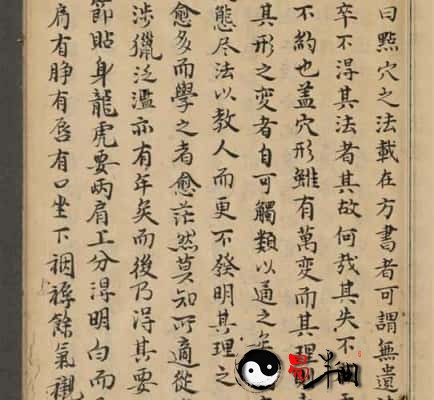 曰㸃穴之法載在方書者可謂無遺
卒不得其法者其故何㦲其失不
不約也盖穴形雖有萬変而其理
其形之変者自可觸類以通之
態尽法以教人而更不發明其理之
愈多而學之者愈茫然莫知所適從
渉獵泛濫亦有年矣而後乃得其要
節貼身龍虎要両肩工分淂明白而
肩有睁有唇有口坐下裀褥餘氣襯